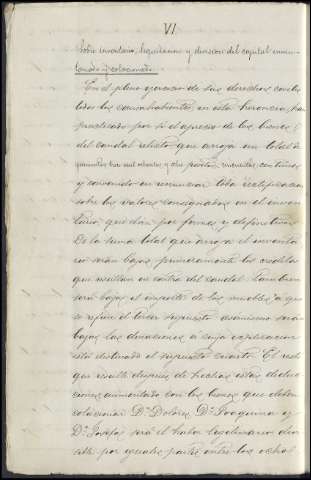 VI
Sobre inventario, liquidacion y division del capital inven-
tariado y colacionado.
En el pleno ejercicio de sus derechos civiles
todos los comparticipantes en esta herencia, han
practicado por sí el aprecio de los bienes
del caudal relicto que arroja un total de
quinientas tres mil ochenta y ocho pesetas, cincuenta centimos
y convenido en renunciar toda rectificacion
sobre los valores consignados en el inven-
tario, que dan por firmes y definitivos.
De la suma total que arroja el inventa-
rio serán bajas primeramente los creditos
que resultan en contra del caudal. Tambien
será baja el importe de los muebles a que
se refiere el tercer supuesto asimismo serán
bajas las donaciones a cuya explicacion
está destinado el supuesto cuarto. El resto
que resulte despues de hechas estas deduc-
ciones aumentado con los bienes que deben
colacionar Dª Dolores, Dª Joaquina y
Dª Josefa será el haber legitimario divi-
sible por iguales partes entre los ocho